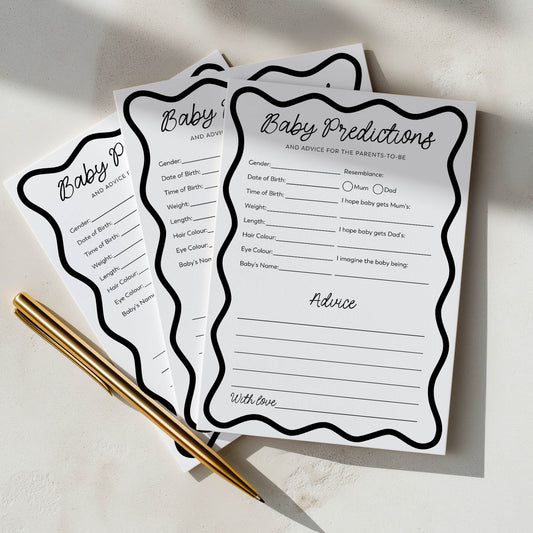 Baby Predictions
AND ADVICE FOR THE PARENTS-TO-BE
Gender:
Date of Birth:
Time of Birth:
Weight:
Length:
Hair Colour:
Eye Colour:
Baby's Name:
Resemblance:
Mum Dad
I hope baby gets Mum's:
I hope baby gets Dad's:
I imagine the baby being:
Advice
With love
Baby P
AND ADVI
Gender:
Date of Birth:
Time of Birth:
Weight:
Length:
Hair Colour:
Eye Colour:
Baby's Name:
Baby P
AND ADVICE
Gender:
Date of Birth:
Time of Birth:
Weight:
Length:
Hair Colour:
Eye Colour:
Baby's Name: